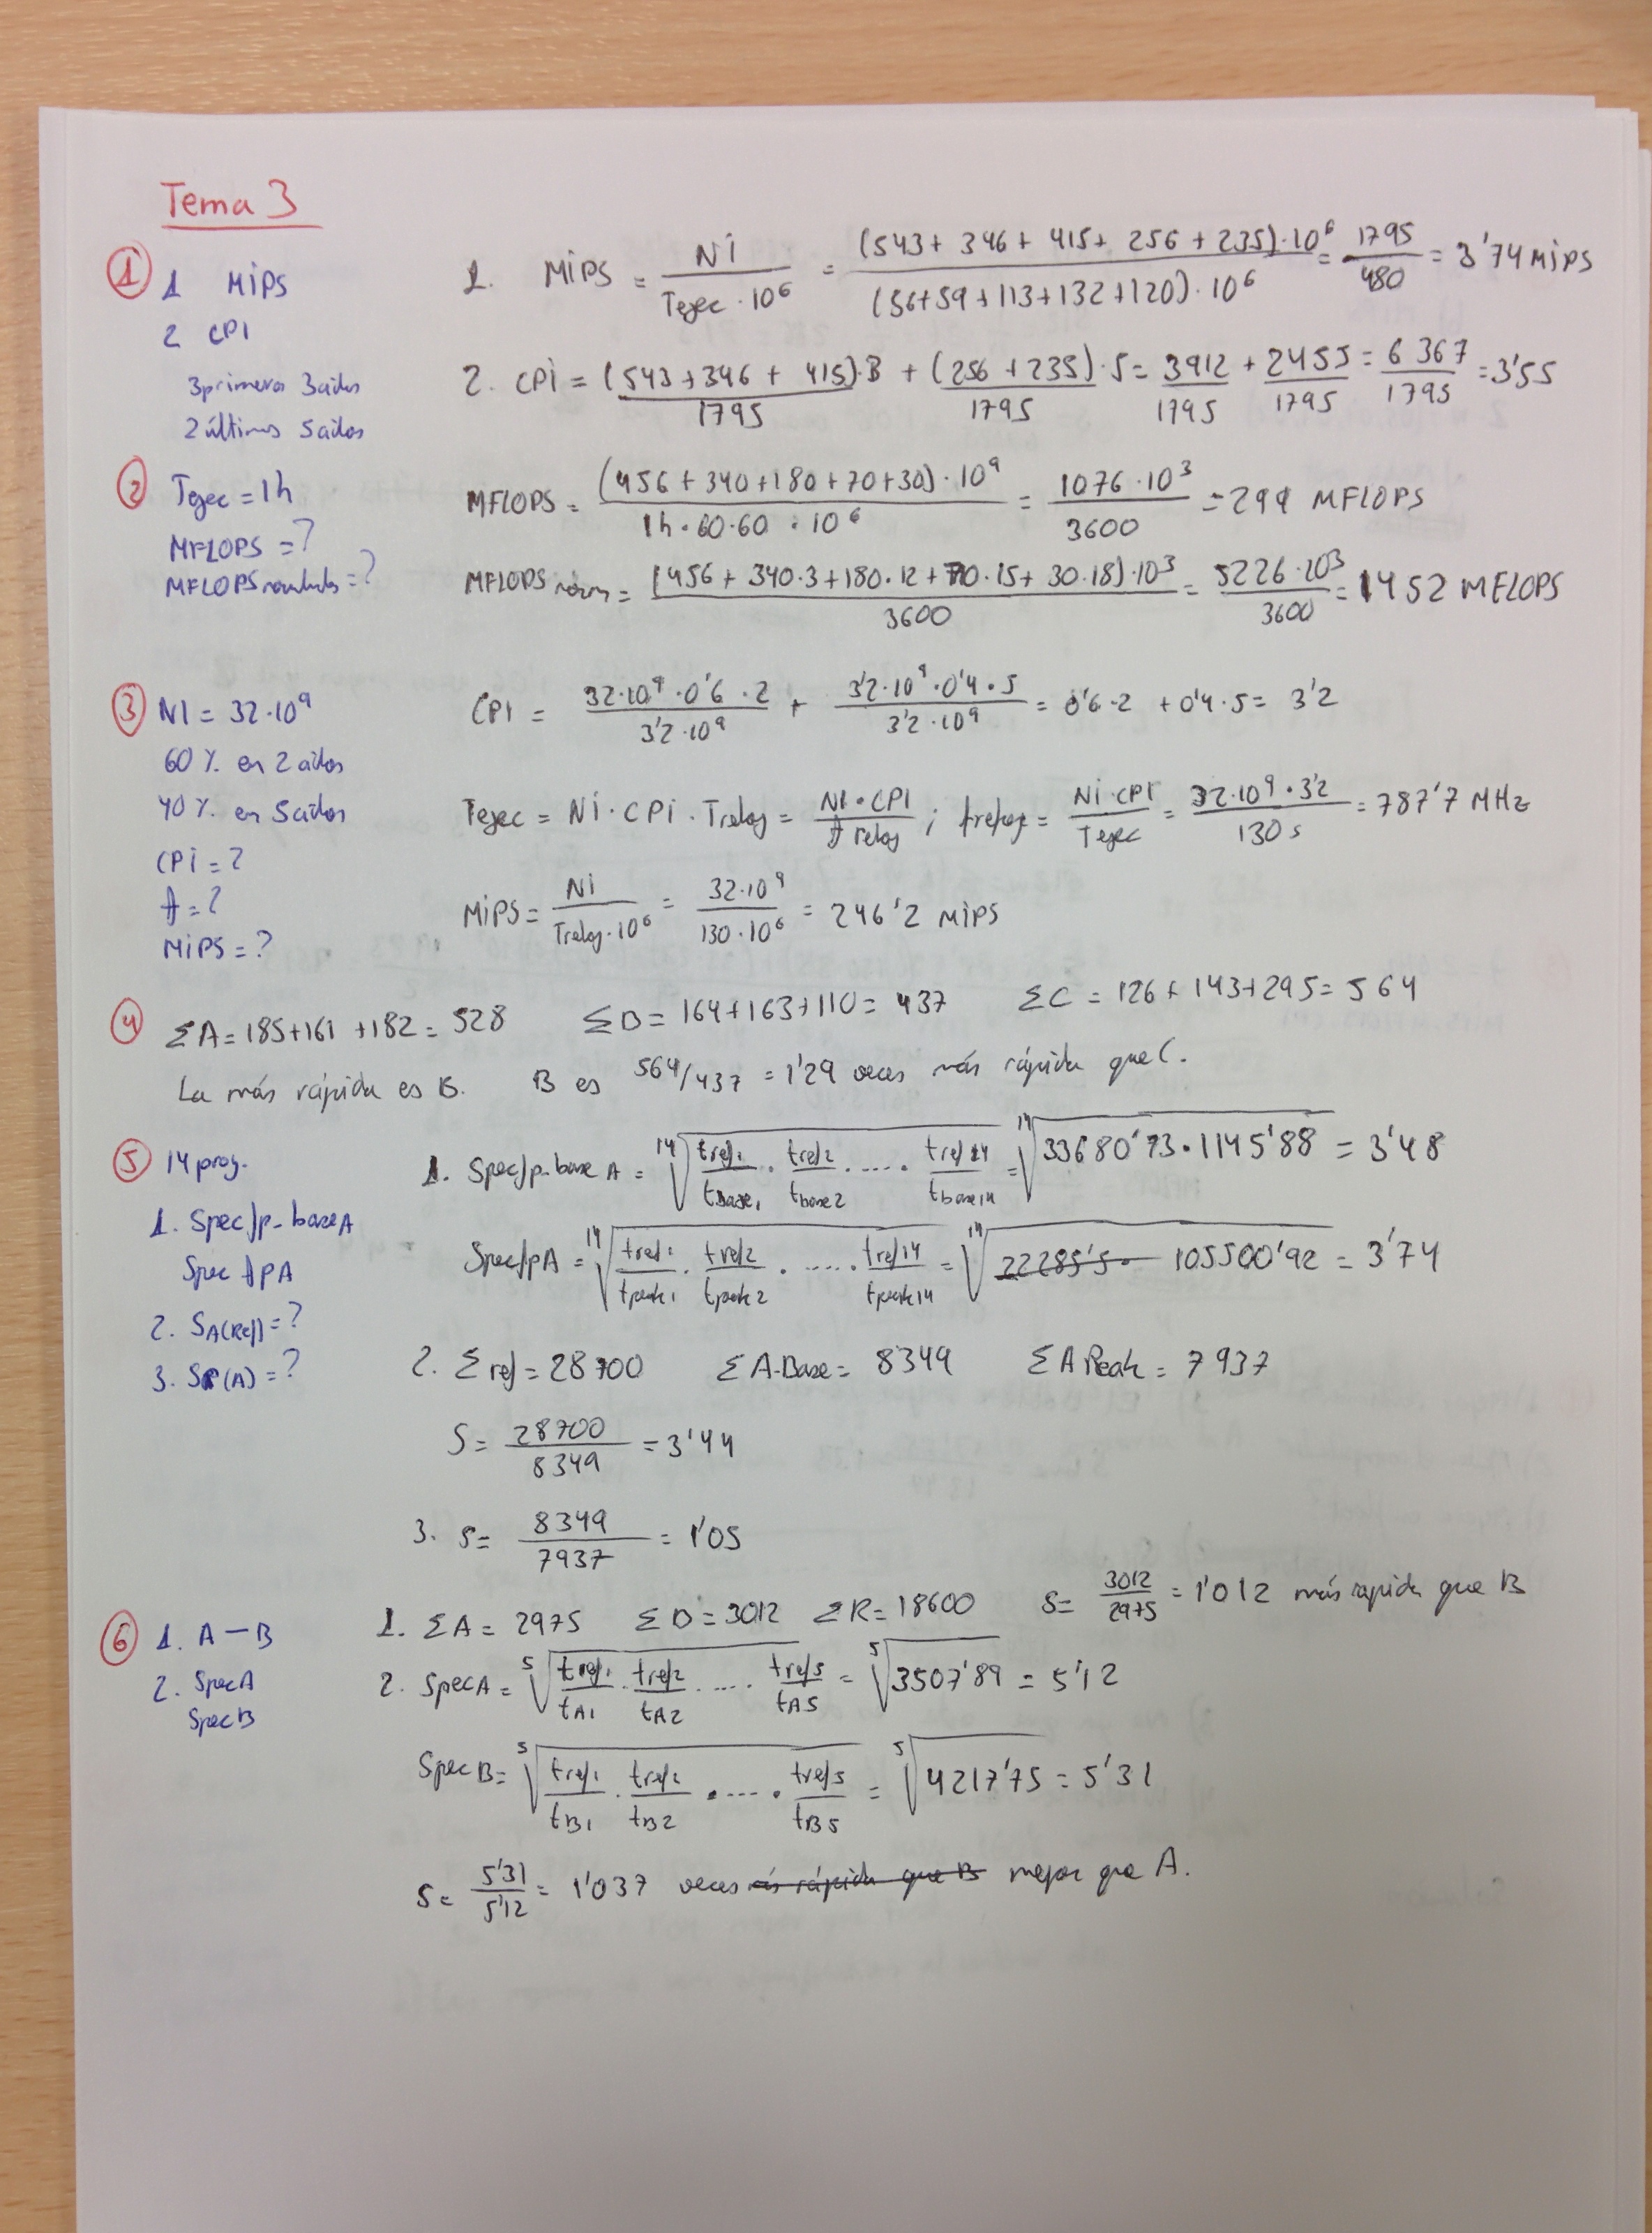 Tema 3
① 1 MiPS
2 CPI
3 primeros 3 ciclos
2 últimos 5 ciclos
1. MiPS = Ni / Tejec · 10^6 = (543 + 346 + 415 + 256 + 235) · 10^6 / (56+59+113+132+120) · 10^6 = 1795 / 480 = 3'74 MiPS
2. CPi = (543+346 + 415)·3 / 1795 + (256 + 235)·5 / 1795 = 3912 / 1795 + 2455 / 1795 = 6367 / 1795 = 3'55
② Tejec = 1h
MFLOPS = ?
MFLOPS normalizados = ?
MFLOPS = (456 + 340 + 180 + 70 + 30) · 10^9 / 1h · 60 · 60 · 10^6 = 1076 · 10^3 / 3600 = 299 MFLOPS
MFLOPS norm = (456 + 340·3 + 180·12 + 70·15 + 30·18) · 10^3 / 3600 = 5226 · 10^3 / 3600 = 1452 MFLOPS
③ NI = 32·10^9
60 % en 2 ciclos
40 % en 5 ciclos
CPi = ?
f = ?
MiPS = ?
CPI = 32·10^9 · 0'6 · 2 / 3'2·10^9 + 3'2·10^9 · 0'4 · 5 / 3'2·10^9 = 0'6·2 + 0'4·5 = 3'2
Tejec = Ni · CPi · Treloj = NI · CPI / f reloj ; freloj = Ni·CPI / Tejec = 32·10^9 · 3'2 / 130 s = 787'7 MHz
MiPS = Ni / Treloj · 10^6 = 32·10^9 / 130·10^6 = 246'2 MiPS
④ ΣA = 185+161+182 = 528 ΣB = 164+163+110 = 437 ΣC = 126 + 143+295 = 564
La más rápida es B. B es 564/437 = 1'29 veces más rápida que C.
⑤ 14 prog.
1. Specfp-base A
Spec fp A
2. S A(Ref) = ?
3. S (A) = ?
1. Specfp-base A = ¹⁴√ tref1 / tbase1 · tref2 / tbase2 · .... · tref14 / tbase14 = ¹⁴√ 33680'73 · 1145'88 = 3'48
SpecfpA = ¹⁴√ tref1 / tpeak1 · tref2 / tpeak2 · ..... · tref14 / tpeak14 = ¹⁴√ 22285'5 · 105500'92 = 3'74
2. Σref = 28700 ΣA-Base = 8349 ΣA Peak = 7937
S = 28700 / 8349 = 3'44
3. S = 8349 / 7937 = 1'05
⑥ 1. A — B
2. Spec A
Spec B
1. ΣA = 2975 ΣB = 3012 ΣR = 18600 S = 3012 / 2975 = 1'012 más rapida que B
2. Spec A = ⁵√ tref1 / tA1 · tref2 / tA2 · .... · tref5 / tA5 = ⁵√ 3507'89 = 5'12
Spec B = ⁵√ tref1 / tB1 · tref2 / tB2 · .... · tref5 / tB5 = ⁵√ 4217'75 = 5'31
S = 5'31 / 5'12 = 1'037 veces más rápida que B mejor que A.